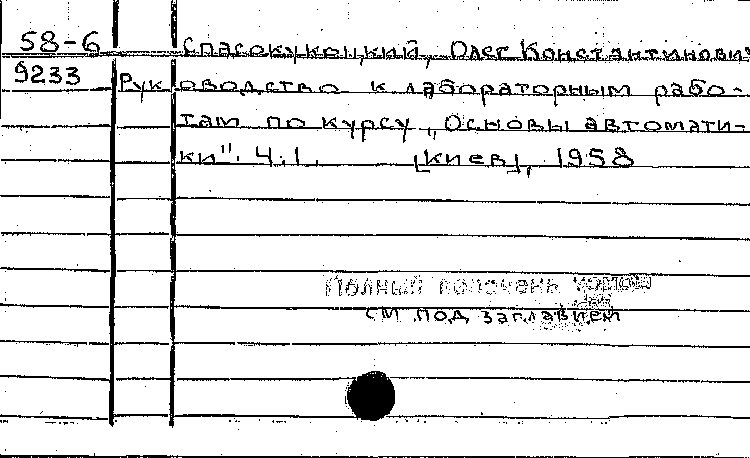 58-6 Спасокукоцкий, Олег Константинович
9233 Руководство к лабораторным рабо-
там по курсу „Основы автомати-
ки". Ч.1. [Киев], 1958
Полный перечень томов
см. под заглавием